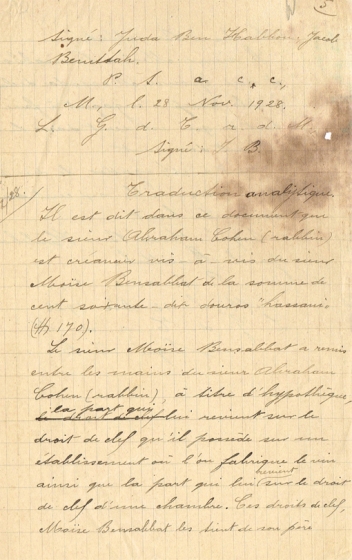 (5)
Signé: Juda Ben Habhou: Jacob
Benittah.
P. S. a. c. c.,
M, l. 28 Nov. 1928.
L. G. d. T. r. d. M.
Signé: J. B.
26./ Traduction analytique.
Il est dit dans ce document que
le sieur Abraham Cohen (rabbin)
est créancier vis-à-vis du sieur
Moïse Bensabbat de la somme de
cent soixante-dix douros "hassani"
(H 170).
Le sieur Moïse Bensabbat a remis
entre les mains du sieur Abraham
Cohen (rabbin), à titre d'hypothèque,
la part qui
le droit de clef lui revient sur le
droit de clef qu'il possède sur un
établissement où l'on fabrique le vin
revient
ainsi que la part qui lui sur le droit
de clef d'une chambre. Ces droits de clef,
Moïse Bensabbat les tient de son père